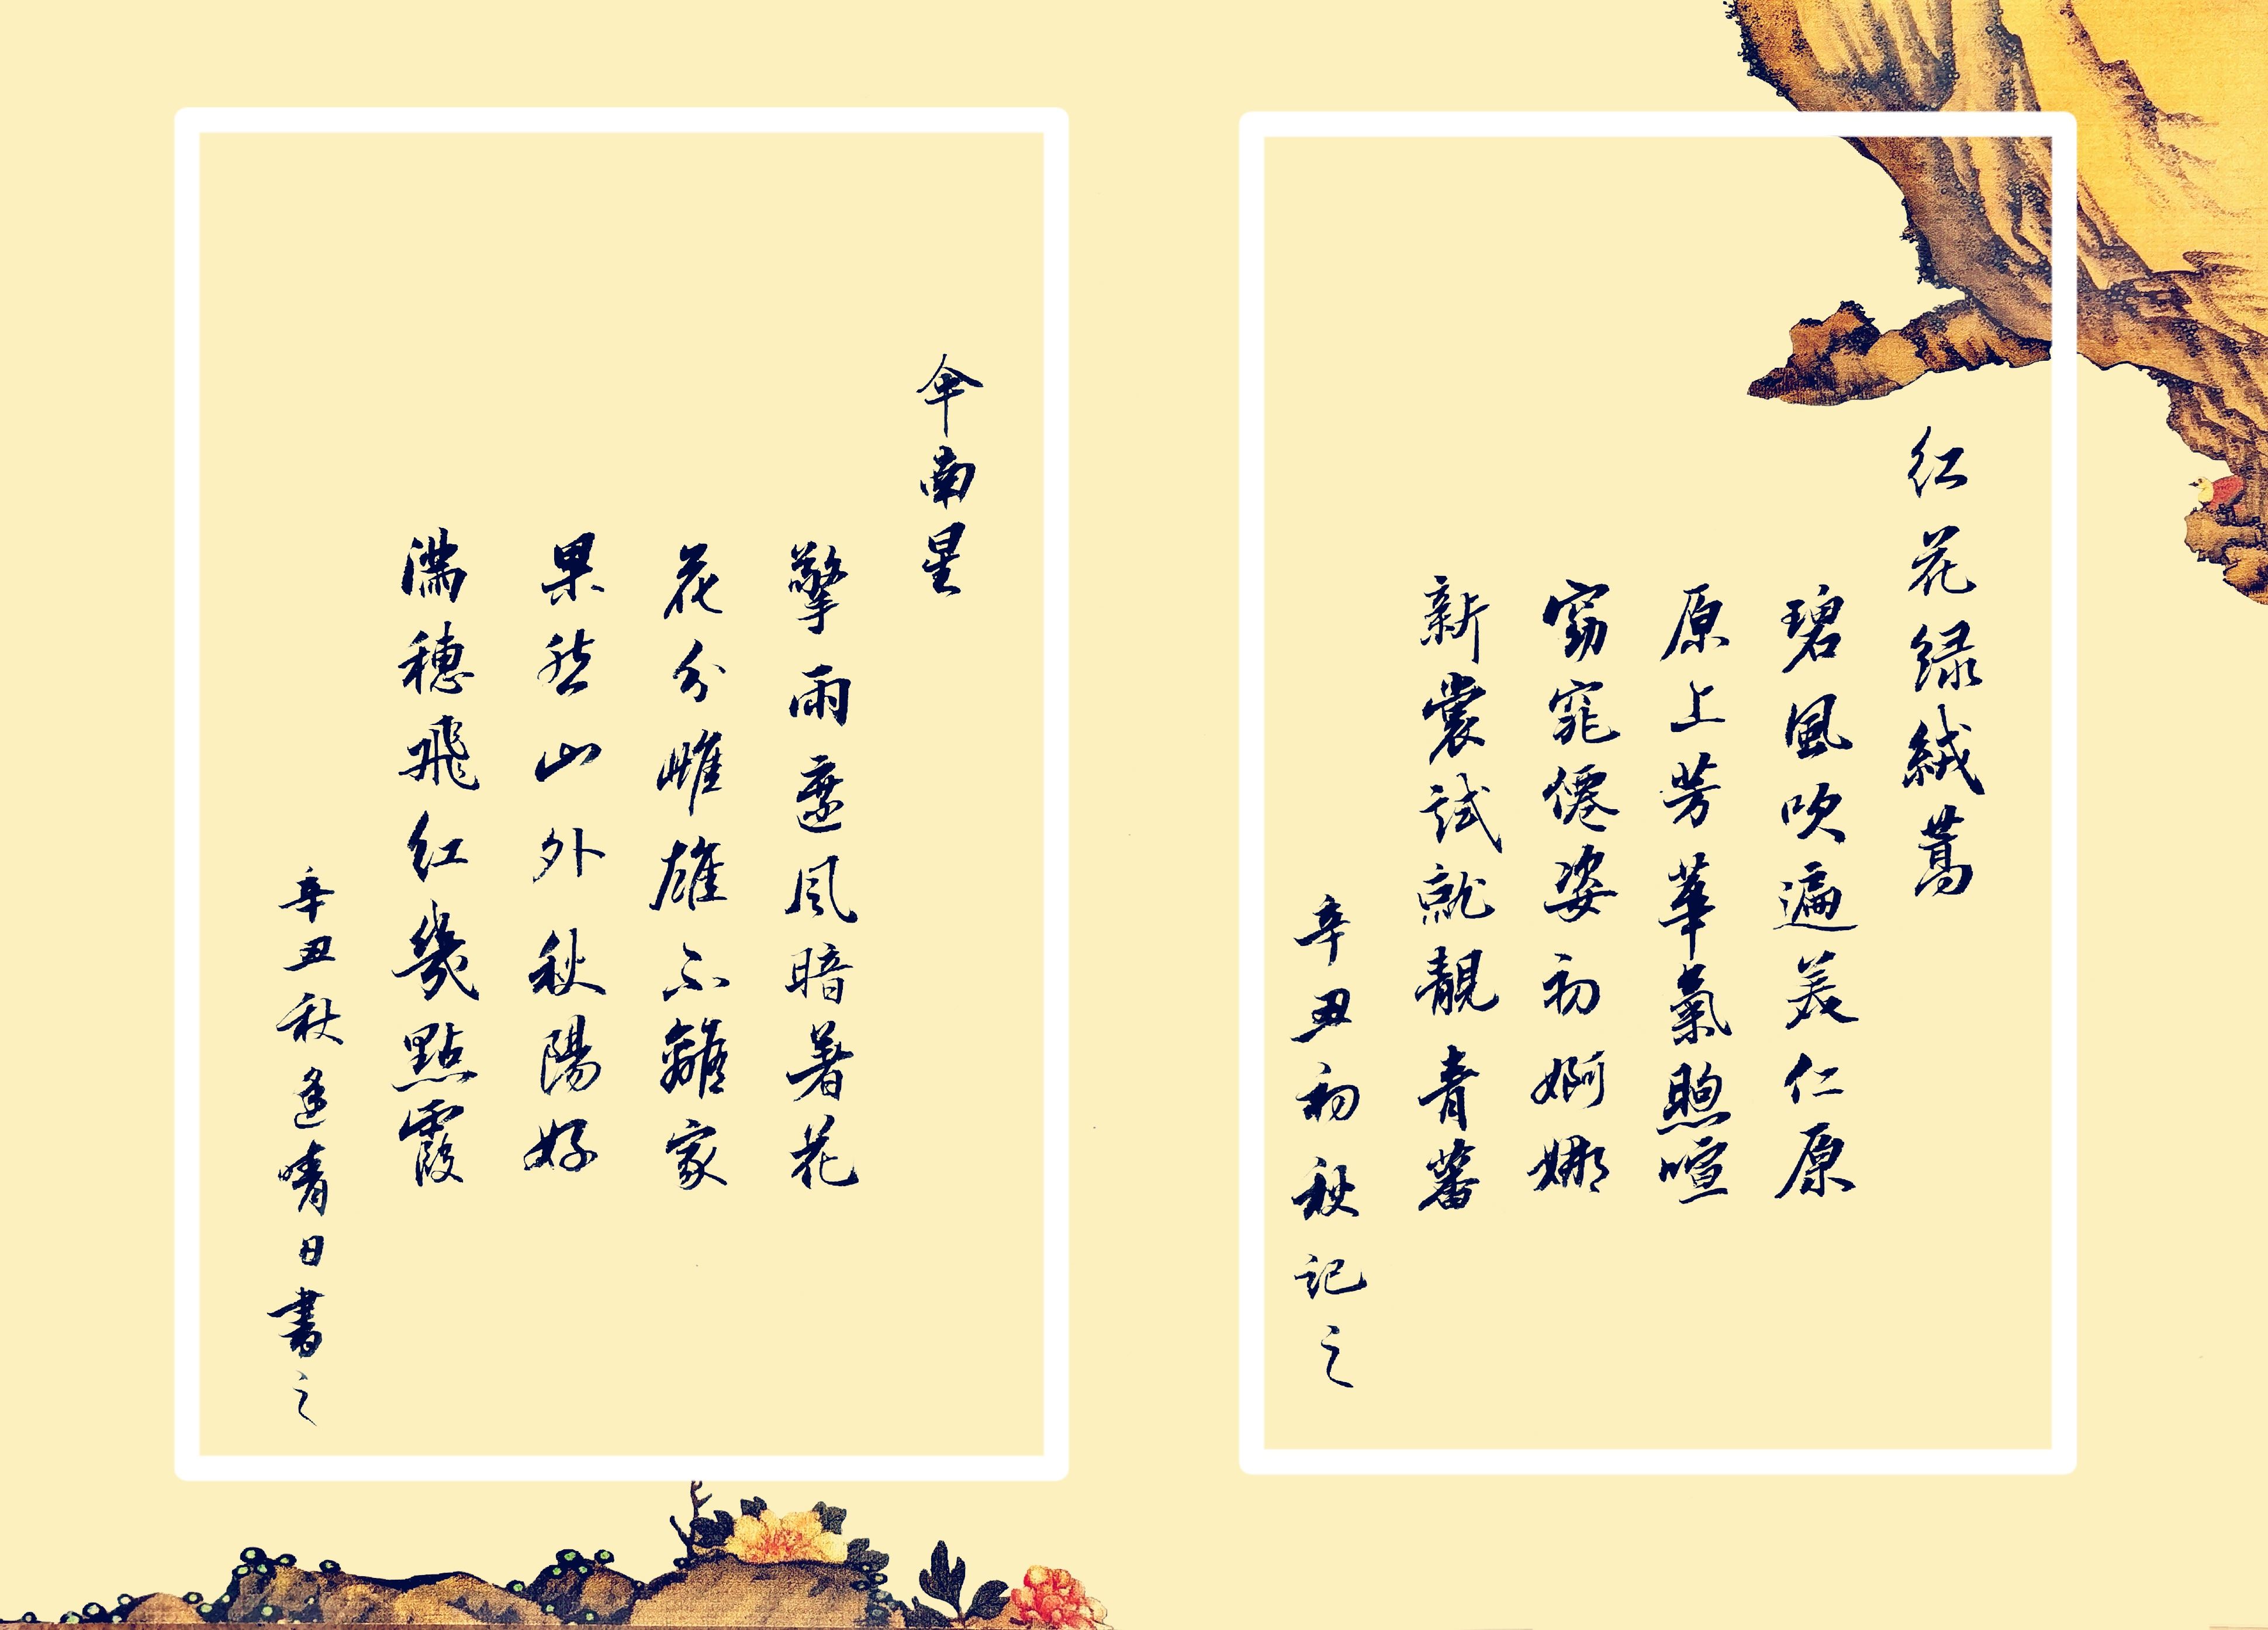 红花绿绒蒿
碧風吹遍羙仁原
原上芳華氣煦喧
窈窕僊姿初婀娜
新裳試就靚青蕃
辛丑初秋記之
伞南星
擎雨遮风暗著花
花分雌雄不離家
果然山外秋陽好
濡穗飛紅幾點霞
辛丑秋逢晴日書之